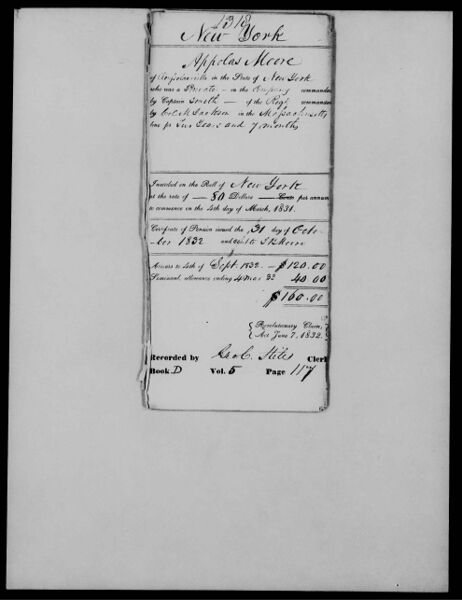 1318
New York
Appolas Moore
of in the State of New York
who was a Private in the Company commanded
by Captain Smith of the Regt commanded
by Col. M Jackson in the Massachusetts
line for Two Years and 7 months
Inscribed on the Roll of New York
at the rate of 80 Dollars Cents per annum
to commence on the 4th day of March, 1831.
Certificate of Pension issued the 31 day of Octo-
ber 1832 and
Arrears to 4th of Sept. 1832 $120.00
Semi-anl. allowance ending 4 Mar 33 40.00
$160.00
Revolutionary Claim,
Act June 7, 1832.
Recorded by Geo C. Stiles Clerk
Book D Vol. 5 Page 117